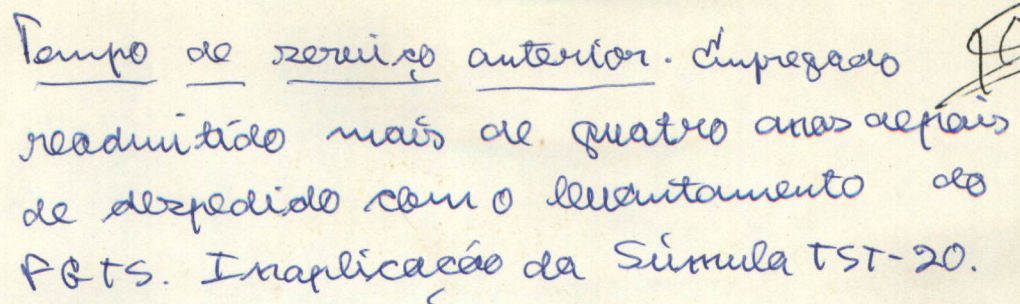 Tempo de serviço anterior. Empregado
readmitido mais de quatro anos depois
de despedido com o levantamento do
FGTS. Inaplicação da Súmula TST-20.